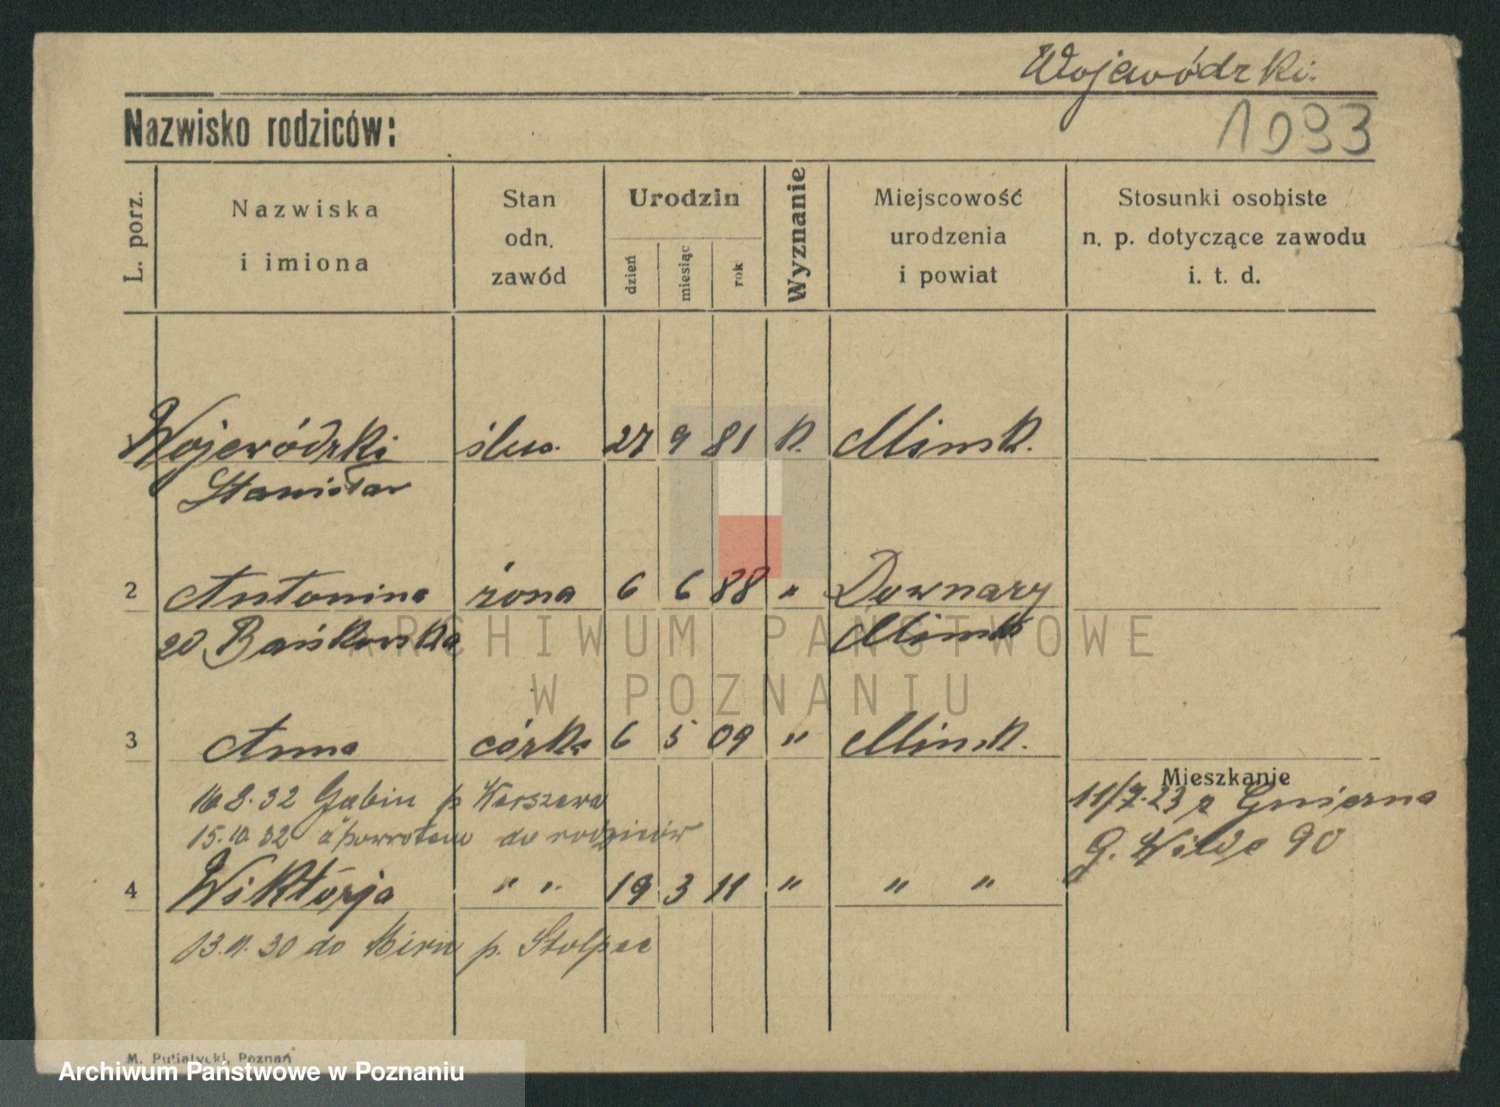 Wojewódzki.
1093
Nazwisko rodziców:
L. porz.
Nazwiska
i imiona
Stan
odn.
zawód
Urodzin
dzień
miesiąc
rok
Wyznanie
Miejscowość
urodzenia
i powiat
Stosunki osobiste
n. p. dotyczące zawodu
i. t. d.
Wojewódzki ślus. 27 9 81 k. Minsk.
Stanisław
2 Antonina żona 6 6 88 " Downary
zd Bańkowska Minsk
3 Anna córka 6 5 09 " Minsk.
16.8.32 Gąbin p Warszawa
15.10.32 z powrotem do rodziców
Mieszkanie
11/7.23 z Gniezna
G. Wilda 90
4 Wiktórja " " 19 3 11 " " "
13.11.30 do p. Stolpce
M. Putiatycki, Poznań
ARCHIWUM PAŃSTWOWE
W POZNANIU
Archiwum Państwowe w Poznaniu